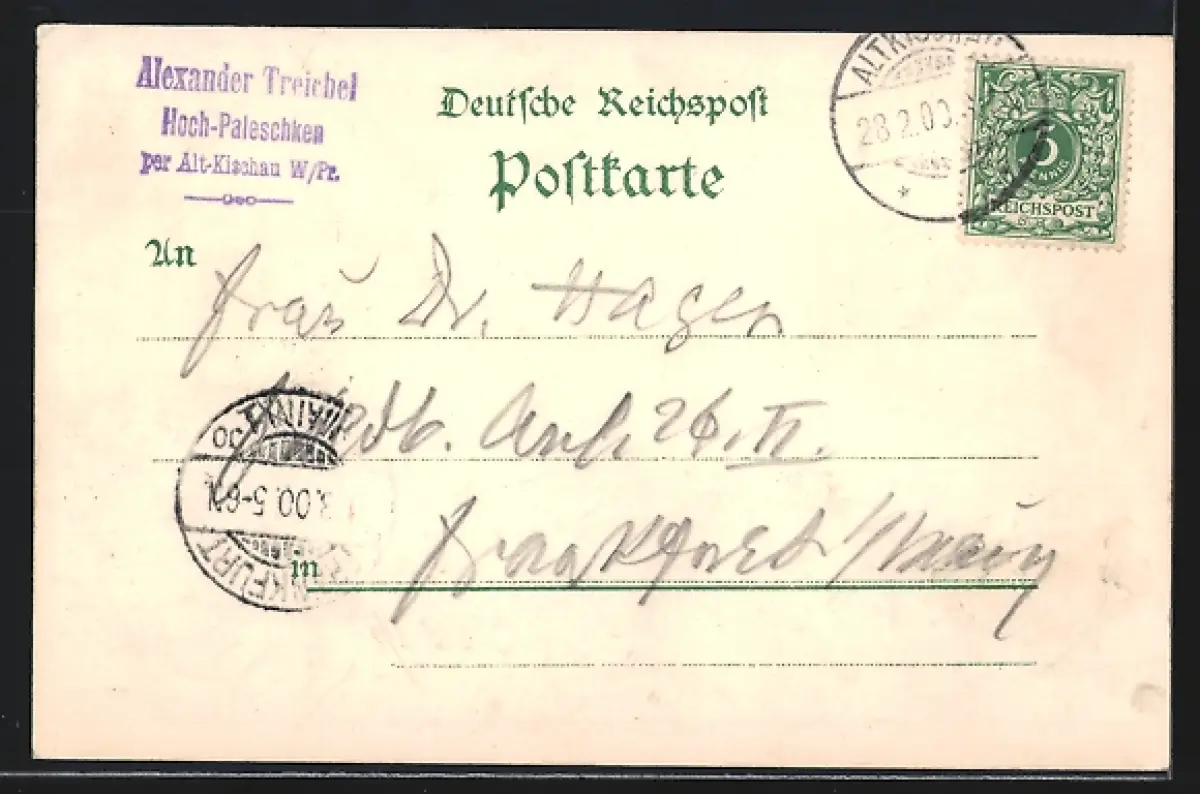 Alexander Treichel
Hoch-Paleschken
per Alt-Kischau W/Pr.
Deutsche Reichspost
Postkarte
ALTKISCHAU
28.2.00.
5
PFENNIG
REICHSPOST
An
Frau Dr. Hagen
26. II.
Frankfurt / Main
in
FRANKFURT
.00.5-6N.
(MAIN) 1